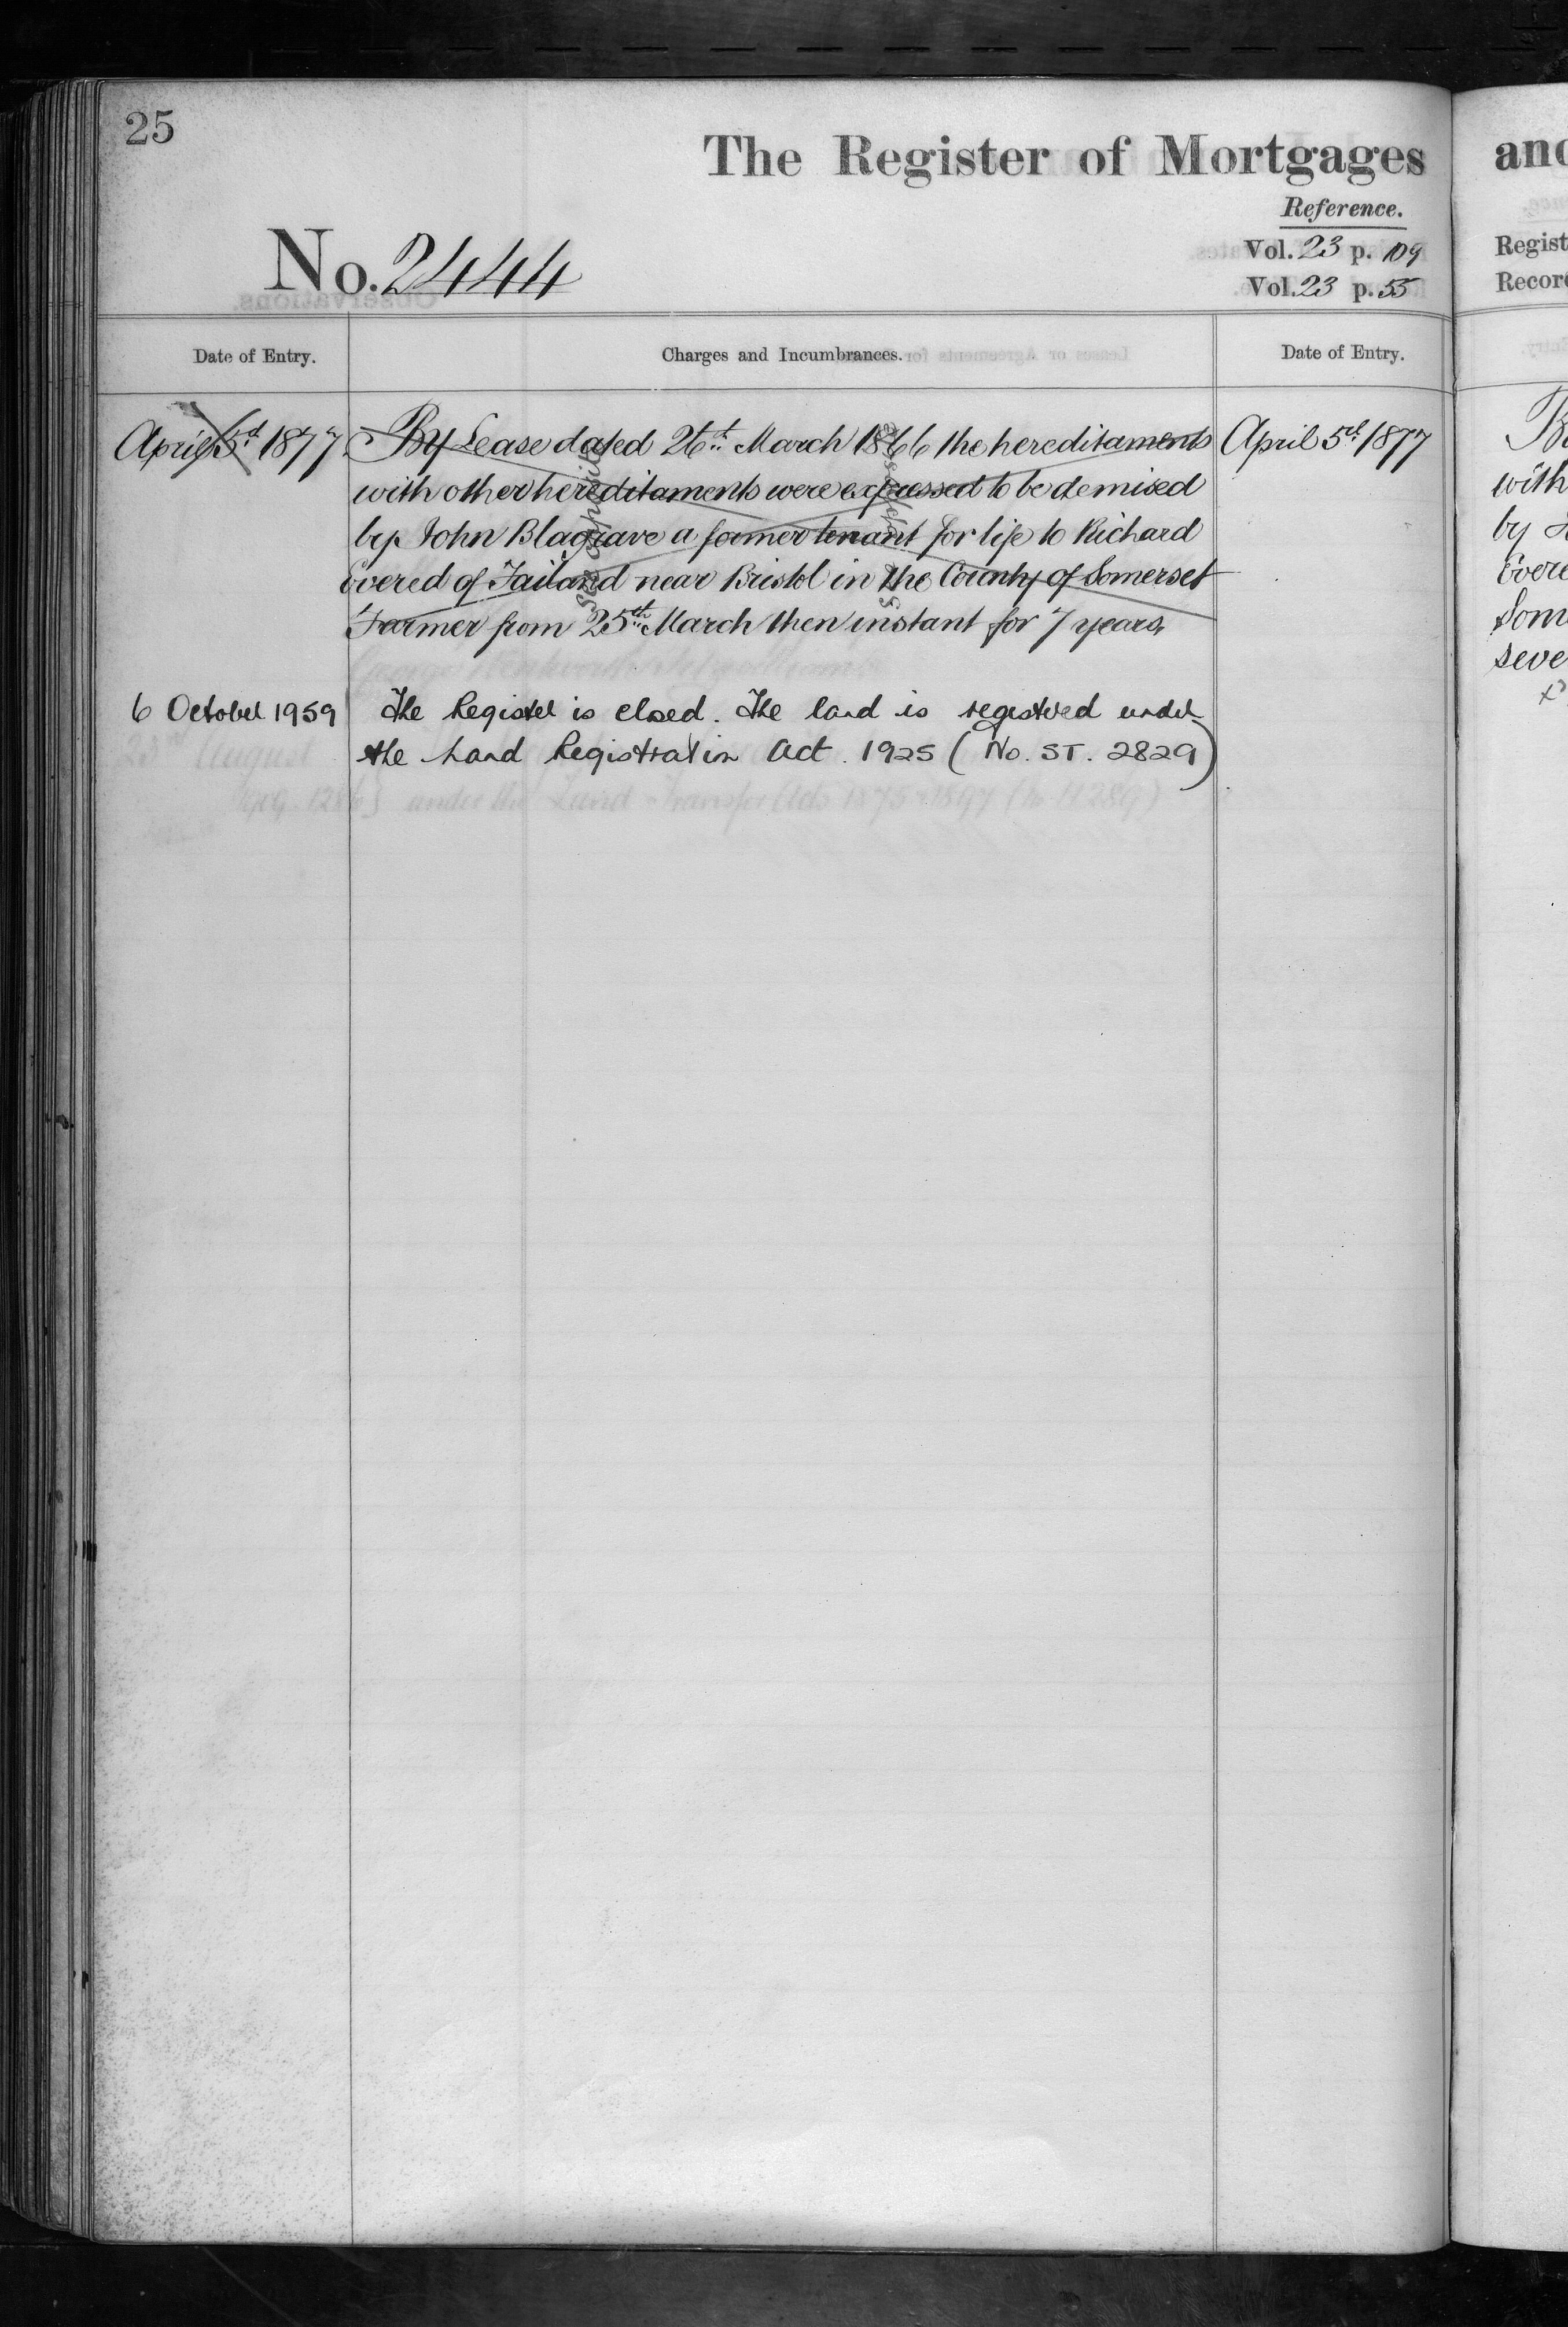 25
The Register of Mortgages
Reference.
No. 2444
Vol. 23 p. 109
Vol. 23 p. 55
Date of Entry.
Charges and Incumbrances.
Date of Entry.
April 5th 1877
By Lease dated 26th March 1866 the hereditaments
with other hereditaments were expressed to be demised
by John Blagrave a former tenant for life to Richard
Evered of Failand near Bristol in the County of Somerset
Farmer from 25th March then instant for 7 years.
April 5th 1877
6 October 1959
The Register is closed. The land is registered under
the Land Registration Act. 1925 (No. ST. 2829)
and
Regist
Record
with
by
Evere
Som
seve